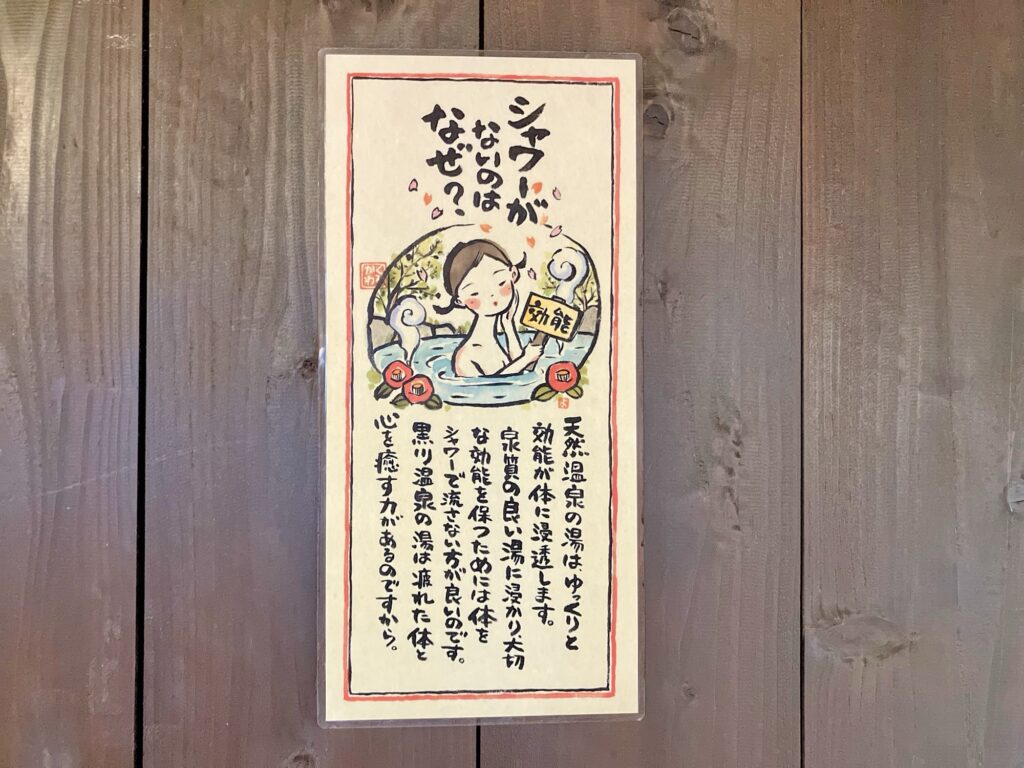 シャワーが
ないのは
なぜ?
効能
天然温泉の湯はゆっくりと
効能が体に浸透します。
泉質の良い湯に浸かり、大切
な効能を保つためには体を
シャワーで流さない方が良いのです。
黒川温泉の湯は疲れた体と
心を癒す力があるのですから。